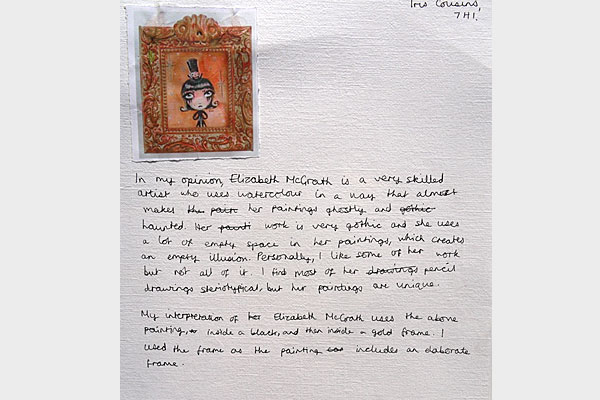 Iris Cousins,
7H1.
In my opinion, Elizabeth McGrath is a very skilled
artist who uses watercolour in a way that almost
makes the pain her paintings ghostly and gothic
haunted. Her painti work is very gothic and she uses
a lot of empty space in her paintings, which creates
an empty illusion. Personally, I like some of her work
but not all of it. I find most of her drawings pencil
drawings steriotypical, but her paintings are unique.
My interpretation of her Elizabeth McGrath uses the above
painting, inside a black, and then inside a gold frame. I
used the frame as the painting includes an elaborate
frame.